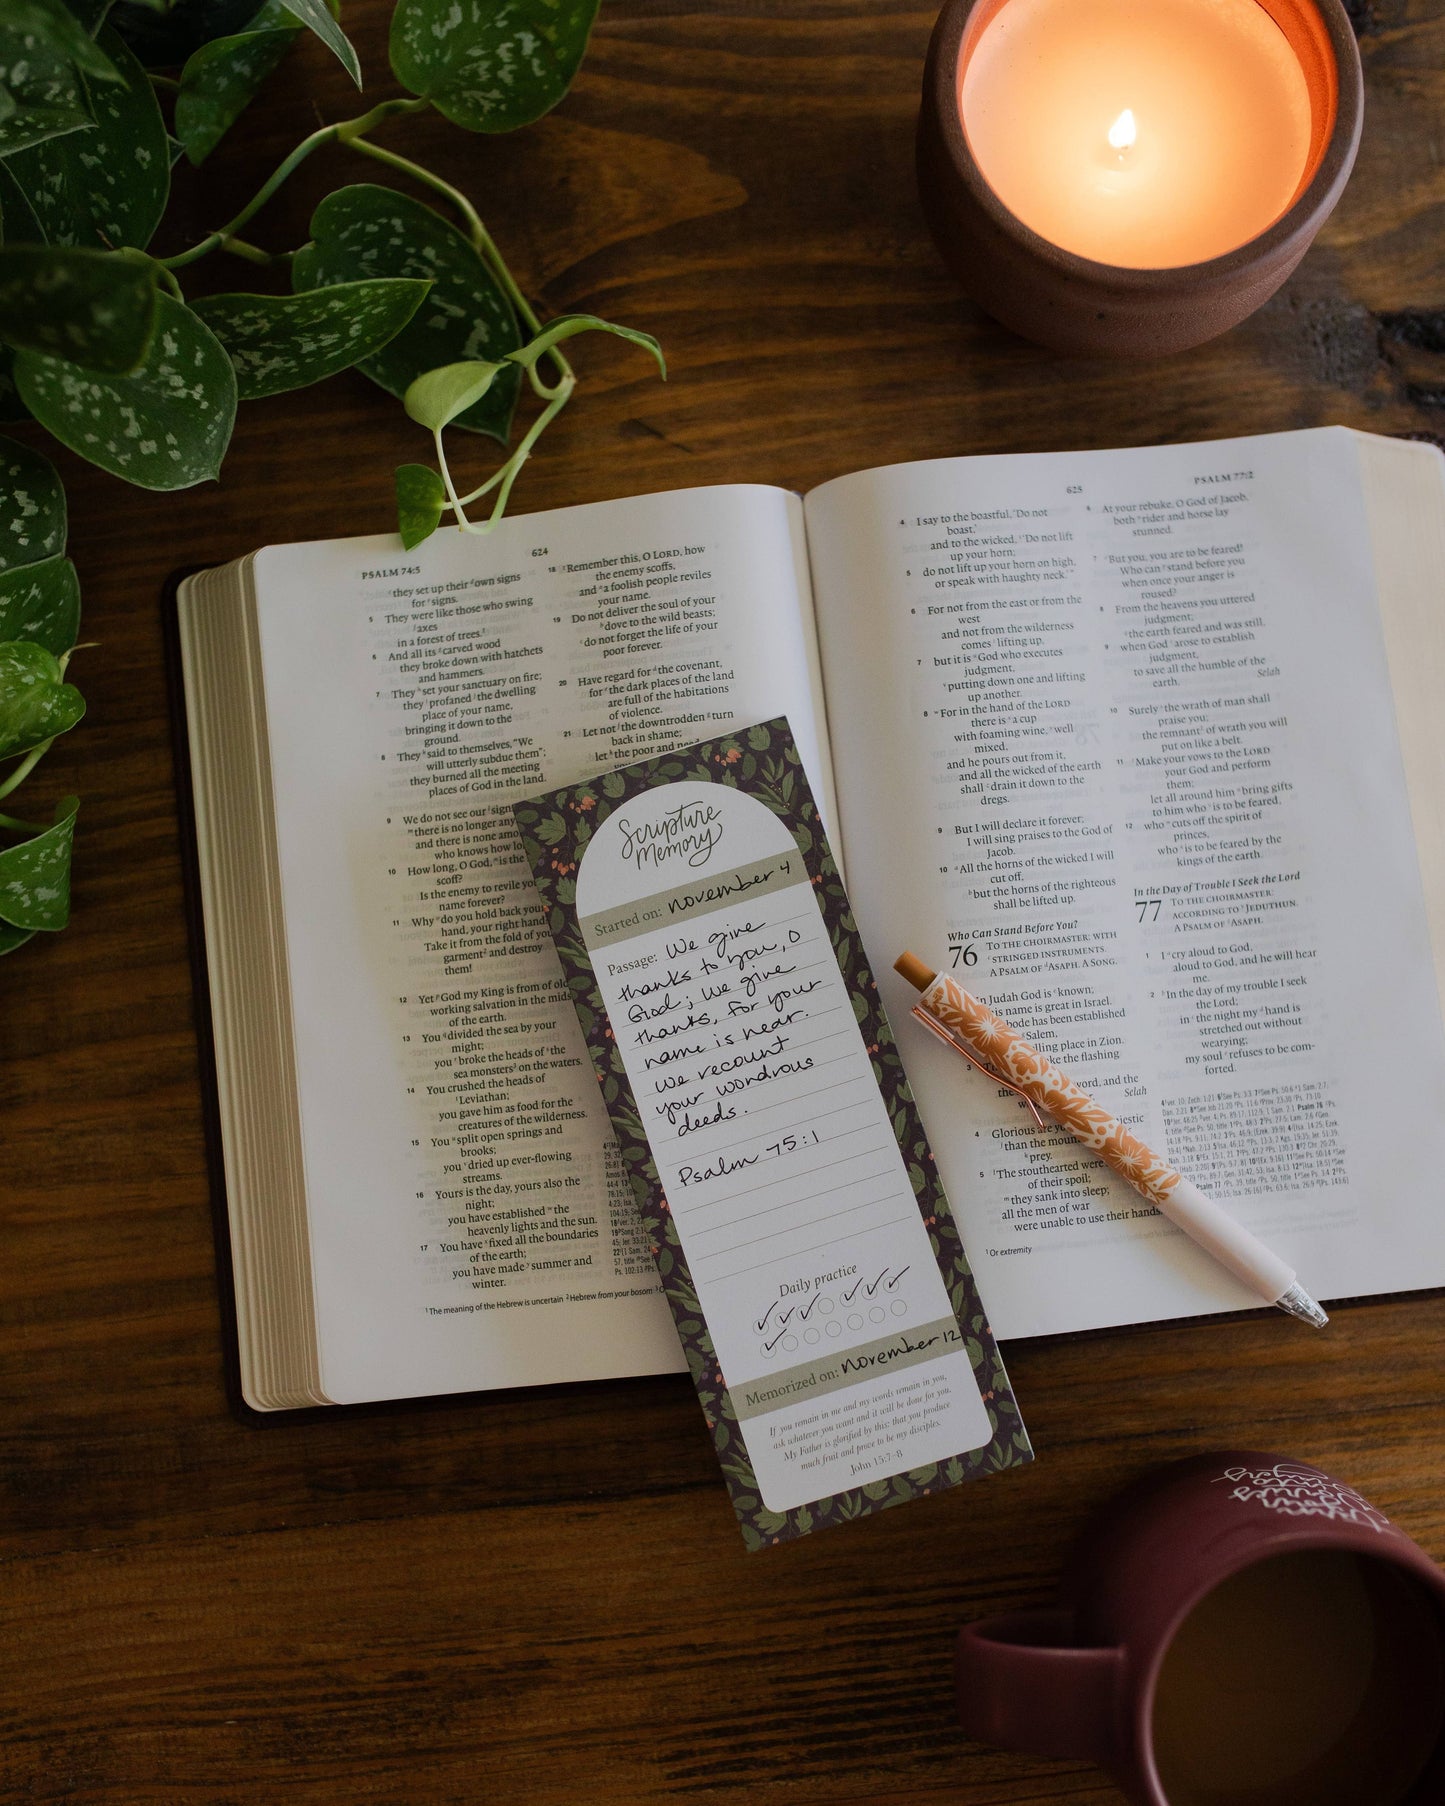 PSALM 74:5
624
ᶜthey set up their ᵈown signs
for ᵉsigns.
5 They were like those who swing
ᶠaxes
in a forest of trees.¹
6 And all its ᵍcarved wood
they broke down with hatchets
and hammers.
7 They ʰset your sanctuary on fire;
they ⁱprofaned ʲthe dwelling
place of your name,
bringing it down to the
ground.
8 They ᵏsaid to themselves, “We
will utterly subdue them”;
they burned all the meeting
places of God in the land.
9 We do not see our ˡsigns
ᵐthere is no longer any
and there is none amo
who knows how lo
10 How long, O God, ⁿis the
scoff?
Is the enemy to revile you
name forever?
11 Why ᵒdo you hold back your
hand, your right hand?
Take it from the fold of you
garment² and destroy
them!
12 Yet ᵖGod my King is from of old
working salvation in the mids
of the earth.
13 You ᵠdivided the sea by your
might;
you ʳbroke the heads of ˢthe
sea monsters³ on the waters.
14 You crushed the heads of
ᵗLeviathan;
you gave him as food for the
creatures of the wilderness.
15 You ᵘsplit open springs and
brooks;
you ᵛdried up ever-flowing
streams.
16 Yours is the day, yours also the
night;
you have established ʷthe
heavenly lights and the sun.
17 You have ˣfixed all the boundaries
of the earth;
you have made ʸsummer and
winter.
18 ᶻRemember this, O LORD, how
the enemy scoffs,
and ᵃa foolish people reviles
your name.
19 Do not deliver the soul of your
ᵇdove to the wild beasts;
ᶜdo not forget the life of your
poor forever.
20 Have regard for ᵈthe covenant,
for ᵉthe dark places of the land
are full of the habitations
of violence.
21 Let not ᶠthe downtrodden ᵍturn
back in shame;
let ʰthe poor and need
¹ The meaning of the Hebrew is uncertain ² Hebrew from your bosom
Scripture
Memory
Started on: November 4
Passage: We give
thanks to you, O
God; we give
thanks, for your
name is near.
We recount
your wondrous
deeds.
Psalm 75:1
Daily practice
Memorized on: November 12
If you remain in me and my words remain in you,
ask whatever you want and it will be done for you.
My Father is glorified by this: that you produce
much fruit and prove to be my disciples.
John 15:7–8
625
PSALM 77:2
4 I say to the boastful, ‘Do not
boast,’
and to the wicked, ‘Do not lift
up your horn;
5 do not lift up your horn on high,
or speak with haughty neck.’”
6 For not from the east or from the
west
and not from the wilderness
comes lifting up,
7 but it is God who executes
judgment,
putting down one and lifting
up another.
8 For in the hand of the LORD
there is a cup
with foaming wine, well
mixed,
and he pours out from it,
and all the wicked of the earth
shall drain it down to the
dregs.
9 But I will declare it forever;
I will sing praises to the God of
Jacob.
10 All the horns of the wicked I will
cut off,
but the horns of the righteous
shall be lifted up.
Who Can Stand Before You?
76 TO THE CHOIRMASTER: WITH
STRINGED INSTRUMENTS.
A PSALM OF ASAPH. A SONG.
In Judah God is known;
is name is great in Israel.
bode has been established
Salem,
lling place in Zion.
ke the flashing
word, and the
Selah
4 Glorious are you
than the moun
prey.
5 The stouthearted were
of their spoil;
they sank into sleep;
all the men of war
were unable to use their hands
¹ Or extremity
6 At your rebuke, O God of Jacob,
both rider and horse lay
stunned.
7 But you, you are to be feared!
Who can stand before you
when once your anger is
roused?
8 From the heavens you uttered
judgment;
the earth feared and was still,
9 when God arose to establish
judgment,
to save all the humble of the
earth. Selah
10 Surely the wrath of man shall
praise you;
the remnant of wrath you will
put on like a belt.
11 Make your vows to the LORD
your God and perform
them;
let all around him bring gifts
to him who is to be feared,
12 who cuts off the spirit of
princes,
who is to be feared by the
kings of the earth.
In the Day of Trouble I Seek the Lord
77 TO THE CHOIRMASTER:
ACCORDING TO JEDUTHUN.
A PSALM OF ASAPH.
1 I cry aloud to God,
aloud to God, and he will hear
me.
2 In the day of my trouble I seek
the Lord;
in the night my hand is
stretched out without
wearying;
my soul refuses to be com-
forted.